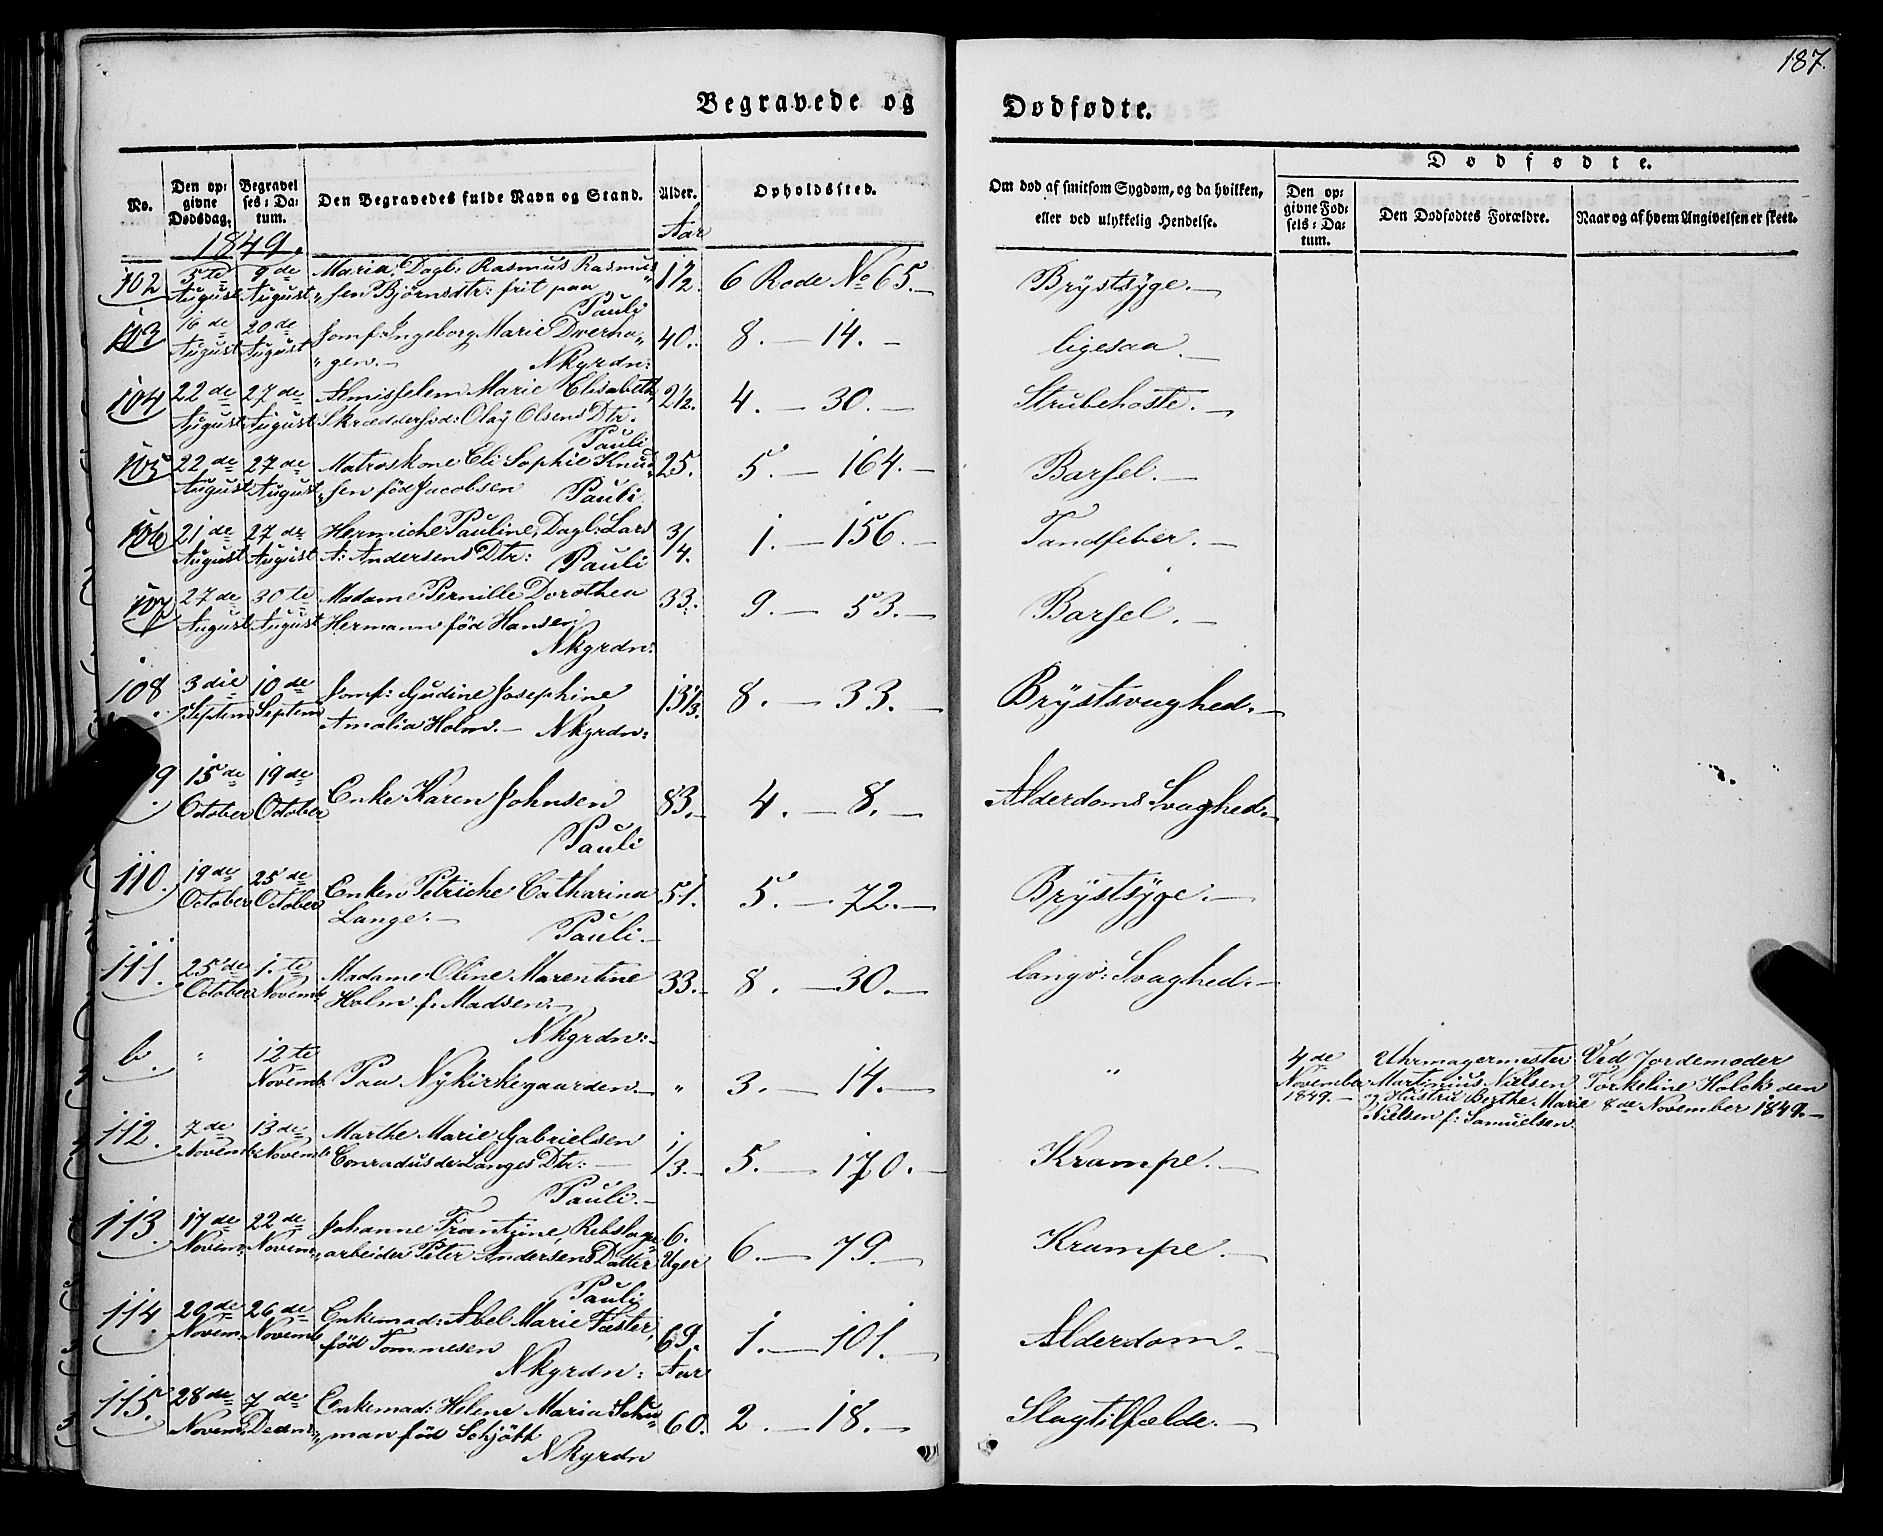 187.
Begravede og Dødfødte.
No.
Den opgivne Dødsdag.
Begravelses-Datum.
Den Begravedes fulde Navn og Stand.
Alder.
Opholdssted.
Om død af smitsom Sygdom, og da hvilken,
eller ved ulykkelig Hendelse.
Dødfødte.
Den opgivne Fødsels-Datum.
Den Dødfødtes Forældre.
Naar og af hvem Angivelsen er skeet.
1849.
Aar
102 5te August 9de August Maria, Dagl: Rasmus Rasmus„ 1/2. 6 Rode No 65.— Brystsyge.—
„sen Bjørns dtr: frit paa
Pauli
103 16de August 20de August Jomf: Ingeborg Marie Dverha„ 40. 8.— 14.— ligesaa.—
„gen.— Nkgrdn:
104 22de August 27de August Almisselem Marie Elisabeth, 2 1/2. 4.— 30.— Strubehoste.—
Skræddersvd: Olay Olsens Dtr.
Pauli
105 22de August 27de August Matroskone Eli Sophie Knud„ 25. 5.— 164.— Barsel.—
„sen fød Jacobsen Pauli
106 21de August 27de August Hermiche Pauline, Dagl: Lars 3/4. 1.— 156.— Tandfeber.—
A: Andersens Dtr: Pauli
107 27de August 30te August Madame Pernille Dorothea 33. 9.— 53.— Barsel.—
Hermann fød Hansen
Nkgrdn:
108 3die Septem 10de Septem Jomf: Gudine Josephine 13 1/3. 8.— 33.— Brystsvaghed.—
Amalia Holm.— Nkgrdn:
9 15de October 19de October Enke Karen Johnsen 83.— 4.— 8.— Alderdoms Svaghed.—
Pauli
110. 19de October 25de October Enken Petriche Catharina 51. 5.— 72.— Brystsyge.—
Lange.—
Pauli.—
111. 25de October 1.te Novemb: Madame Oline Marentine 33.— 8.— 30.— langv: Svaghed.—
Holm f. Madsen.—
Nkgrdn:—
b. " 12te Novemb. Paa Nykirkegaarden.— " 3.— 14.— " 4de November 1849.— Uhrmagermester Martinius Nielsen og Hustru Berthe Marie Nielsen f: Samuelsen. Ved Jordemoder Torkeline Holck den 8de November 1849.—
112. 7de Novemb. 13de Novemb. Marthe Marie Gabrielsen 1/3.— 5.— 170.— Krampe.—
Conradus de Langes Dtr:—
Pauli.—
113. 17de Novem: 22de Novem: Johanne Frantzine, Rebslage„ 6. Uger 6.— 79.— Krampe.—
„arbeider Peter Andersens Datter
Pauli
114 20de Novem: 26de Novemb Enkemad: Abel Marie Fæster, 69. Aar 1.— 101.— Alderdom.—
fød Tommesen
Nkgrdn:
115. 28de Novem. 7de Decem: Enkemad: Helene Maria Schu„ 60. 2.— 18.— Slagtilfælde.—
„man fød Schjøtt
Nkgrdn